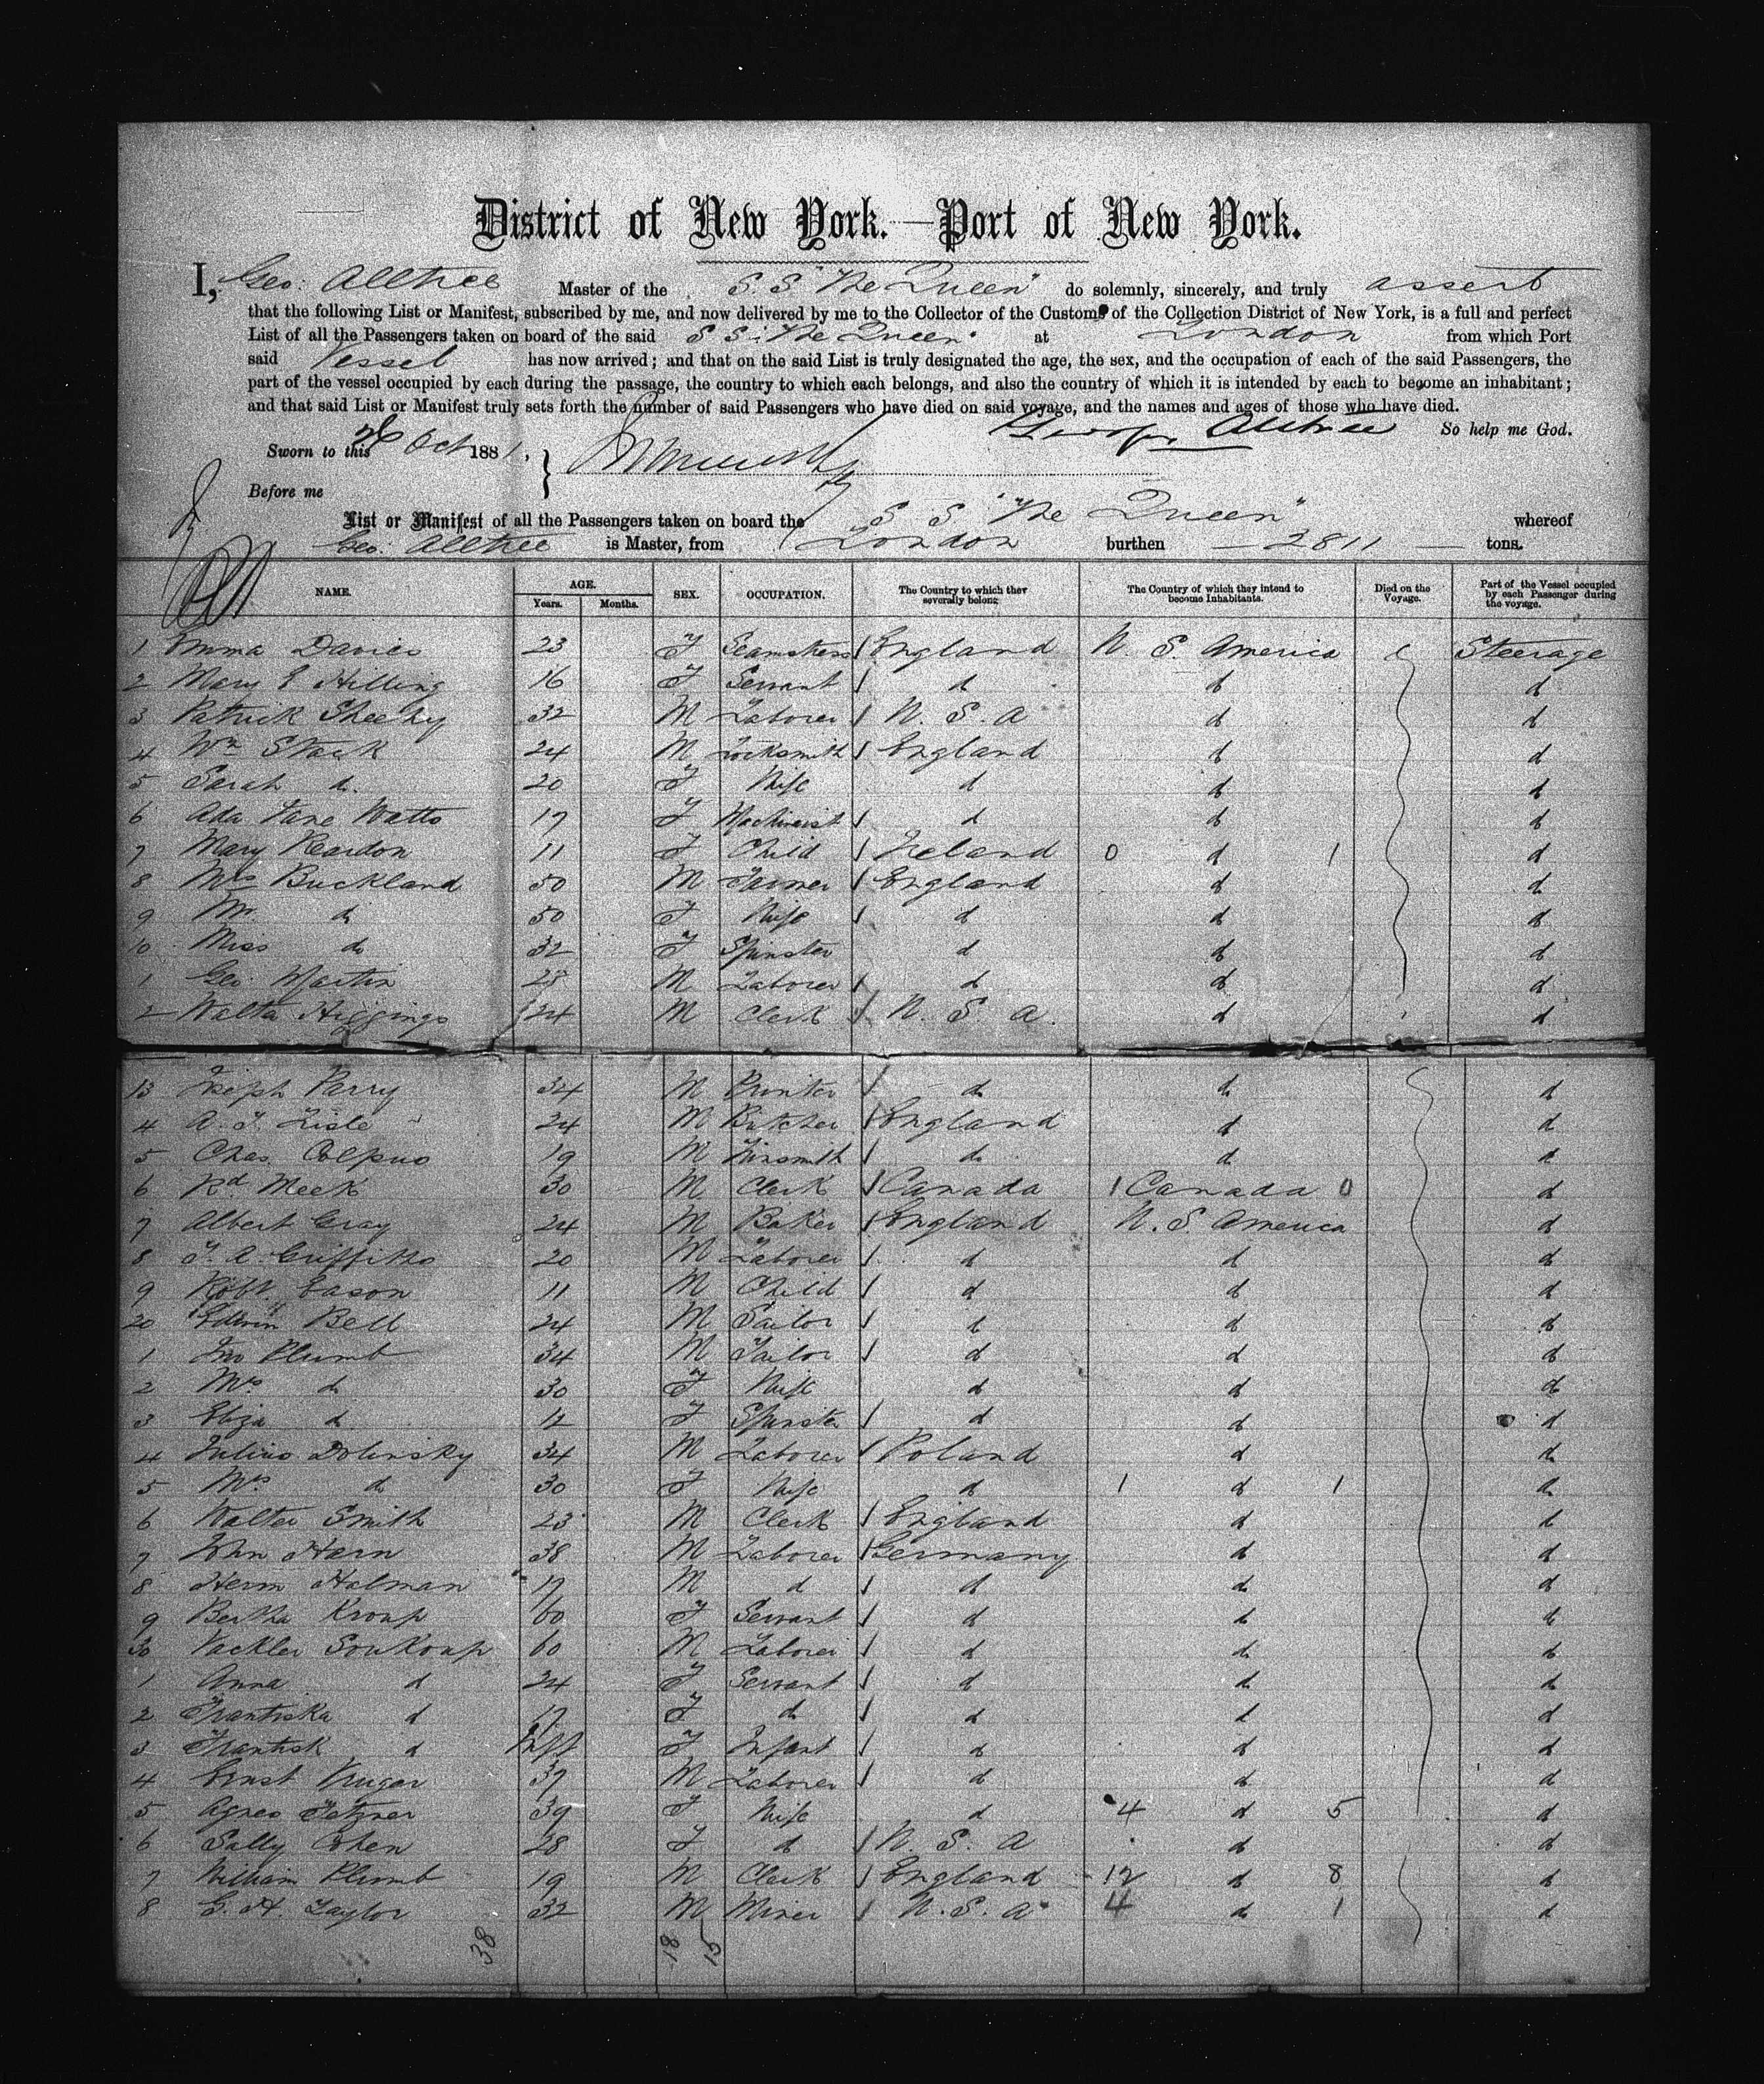 District of New York.—Port of New York.
I, Geo: Alltree Master of the S. S "The Queen" do solemnly, sincerely, and truly assert
that the following List or Manifest, subscribed by me, and now delivered by me to the Collector of the Customs of the Collection District of New York, is a full and perfect
List of all the Passengers taken on board of the said S S "The Queen" at London from which Port
said Vessel has now arrived; and that on the said List is truly designated the age, the sex, and the occupation of each of the said Passengers, the
part of the vessel occupied by each during the passage, the country to which each belongs, and also the country of which it is intended by each to become an inhabitant;
and that said List or Manifest truly sets forth the number of said Passengers who have died on said voyage, and the names and ages of those who have died.
George Alltree So help me God.
Sworn to this 26 Oct 1881,
Before me
List or Manifest of all the Passengers taken on board the S S "The Queen" whereof
Geo: Alltree is Master, from London burthen 2811 tons.
NAME. AGE. Years. Months. SEX. OCCUPATION. The Country to which they severally belong The Country of which they intend to become Inhabitants. Died on the Voyage. Part of the Vessel occupied by each Passenger during the voyage.
1 Emma Davies 23 F Seamstress England U. S. America Steerage
2 Mary E Hilling 16 F Servant d d d
3 Patrick Sheehy 32 M Laborer U. S. A d d
4 Wm Stack 24 M Locksmith England d d
5 Sarah do. 20 F Wife d d d
6 Ada Jane Watts 17 F Machinist d d d
7 Mary Reardon 11 F Child Ireland 0 d 1 d
8 Mrs Buckland 50 M Farmer England d d
9 Mr. do 50 F Wife d d d
10 Miss do 32 F Spinster d d d
1 Geo: Martin 25 M Laborer d d d
2 Walter Higgings 24 M Clerk U. S. A. d d
13 Joseph Parry 34 M Printer d d d
4 A. J. Lisle 24 M Butcher England d d
5 Chas. Colpus 19 M Tinsmith d d d
6 Rd Meek 30 M Clerk Canada 1 Canada 0 d
7 Albert Gray 24 M Baker England U. S. America d
8 F. A. Griffiths 20 M Laborer d d d
9 Robt. Eason 11 M Child d d d
20 Edwin Bell 24 M Sailor d d d
1 Jno Plumb 34 M Tailor d d d
2 Mrs d 30 F Wife d d d
3 Eliza d 12 F Spinster d d d
4 Julius Dolinsky 34 M Laborer Poland d d
5 Mrs do 30 F Wife d 1 d 1 d
6 Walter Smith 23 M Clerk England d d
7 John Harn 38 M Laborer Germany d d
8 Herm Halman 17 M d d d d
9 Bertha Kroup 60 F Servant d d d
30 Vackler Soukoup 60 M Laborer d d d
1 Anna d 24 F Servant d d d
2 Frantiska d 17 F do d d d
3 Frantisk d Inft F Infant d d d
4 Ernst Kruger 37 M Laborer d d d
5 Agnes Tetzner 39 F Wife d 4 d 5 d
6 Sally Cohen 28 F d U. S. A d d
7 William Plumb 19 M Clerk England 12 d 8 d
8 G. H. Taylor 32 M Miner U. S. A 4 d 1 d
38 18 15